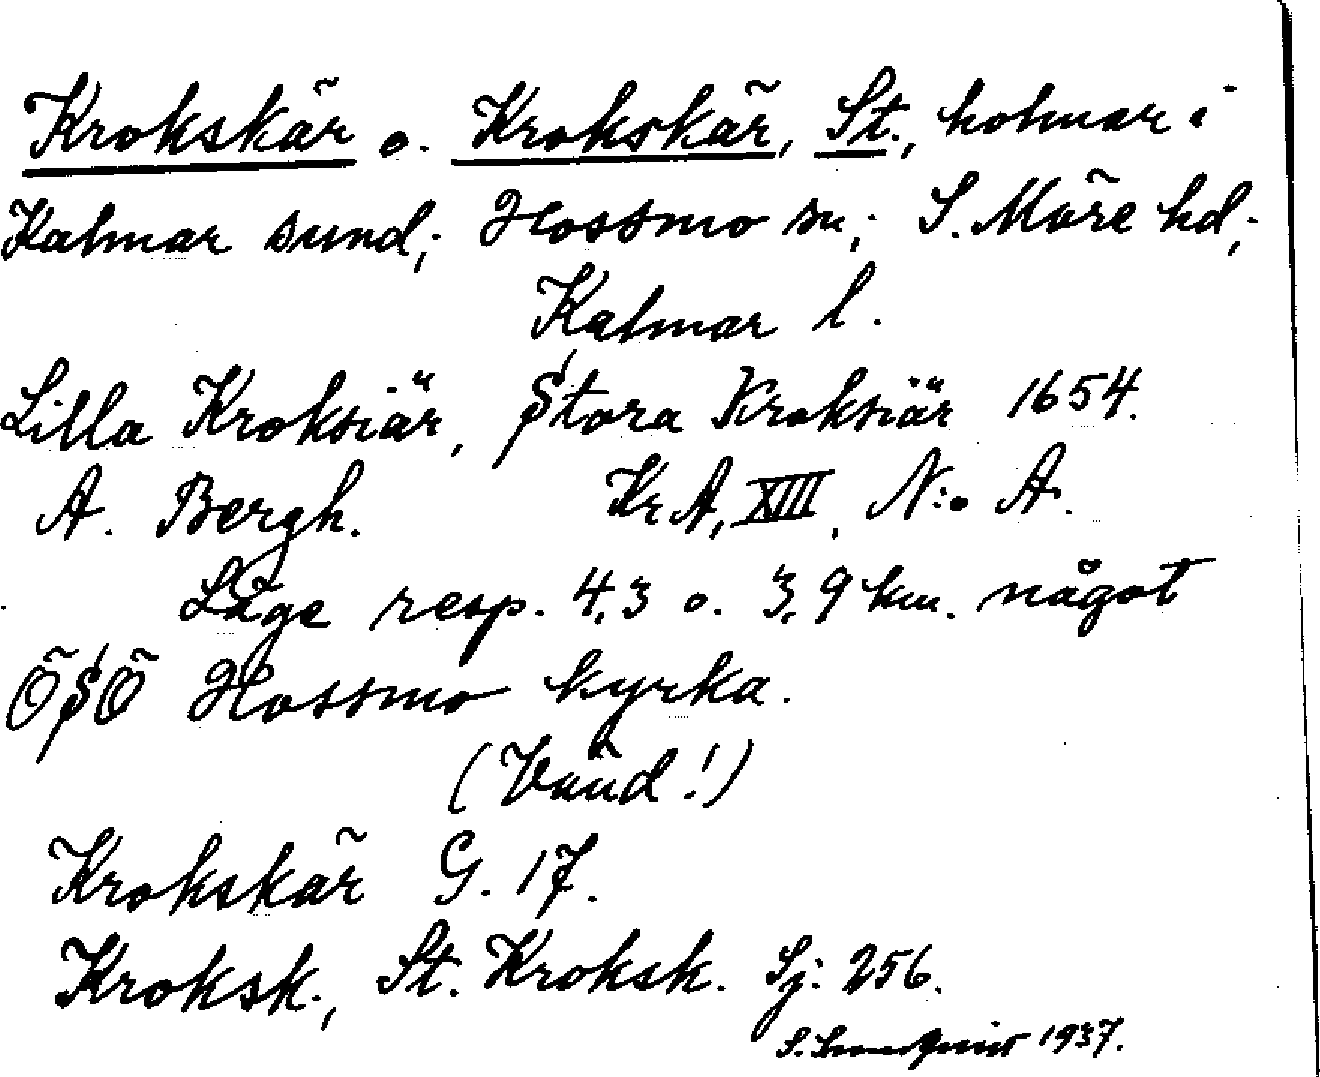 Krokskär o. Krokskär, St., holmar i
Kalmar sund; Hossmo sn; S. Möre hd;
Kalmar l.
Lilla Kroksiär, Stora Kroksiär 1654.
A. Bergh. Kr A, XIII, N:o A.
Läge resp. 4,3 o. 3,9 km. något
ÖSÖ Hossmo kyrka.
(Vänd!)
Krokskär G. 17.
Kroksk., St. Kroksk. Sj. 256.
S. 1937.